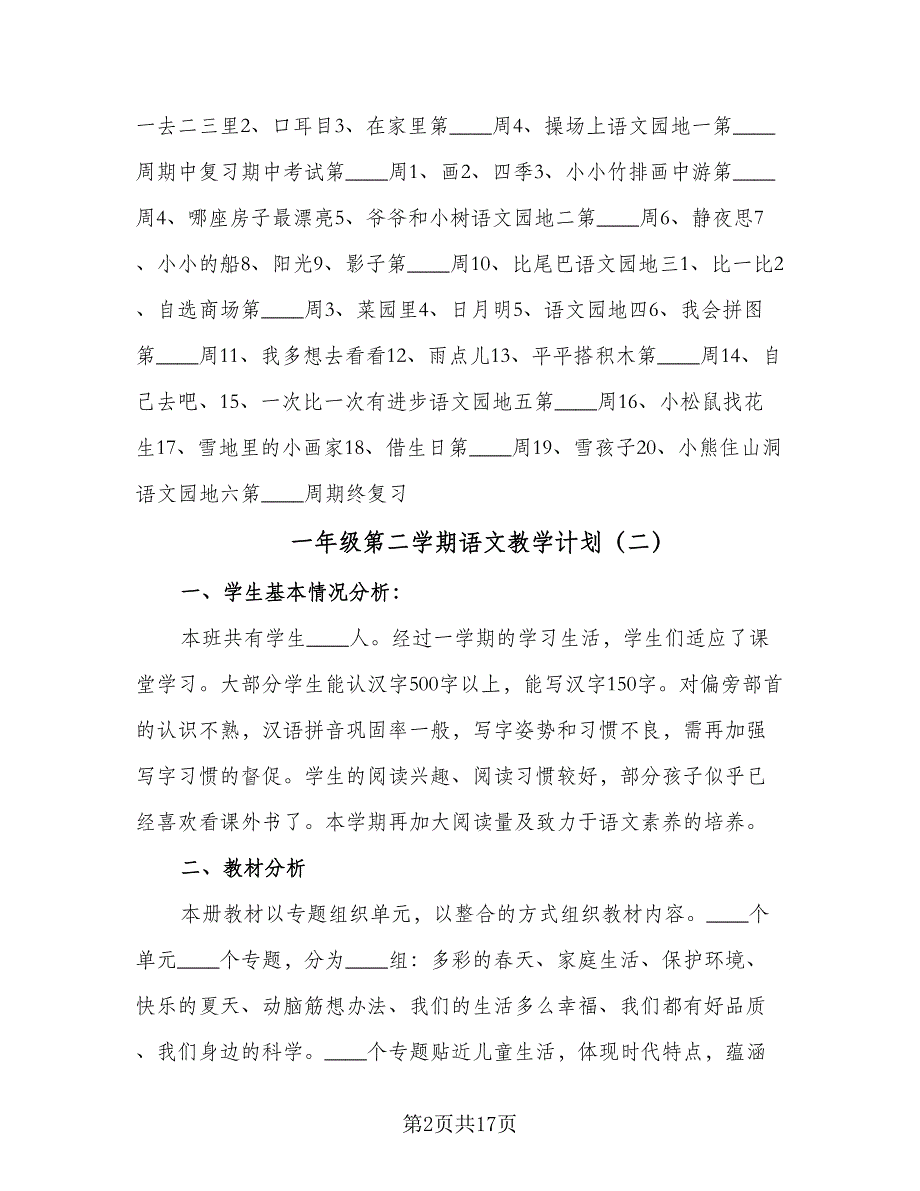 一去二三里2、口耳目3、在家里第____周4、操场上语文园地一第____
周期中复习期中考试第____周1、画2、四季3、小小竹排画中游第____
周4、哪座房子最漂亮5、爷爷和小树语文园地二第____周6、静夜思7
、小小的船8、阳光9、影子第____周10、比尾巴语文园地三1、比一比2
、自选商场第____周3、菜园里4、日月明5、语文园地四6、我会拼图
第____周11、我多想去看看12、雨点儿13、平平搭积木第____周14、自
己去吧、15、一次比一次有进步语文园地五第____周16、小松鼠找花
生17、雪地里的小画家18、借生日第____周19、雪孩子20、小熊住山洞
语文园地六第____周期终复习
一年级第二学期语文教学计划（二）
一、学生基本情况分析：
本班共有学生____人。经过一学期的学习生活，学生们适应了课
堂学习。大部分学生能认汉字500字以上，能写汉字150字。对偏旁部首
的认识不熟，汉语拼音巩固率一般，写字姿势和习惯不良，需再加强
写字习惯的督促。学生的阅读兴趣、阅读习惯较好，部分孩子似乎已
经喜欢看课外书了。本学期再加大阅读量及致力于语文素养的培养。
二、教材分析
本册教材以专题组织单元，以整合的方式组织教材内容。____个
单元____个专题，分为____组：多彩的春天、家庭生活、保护环境、
快乐的夏天、动脑筋想办法、我们的生活多么幸福、我们都有好品质
、我们身边的科学。____个专题贴近儿童生活，体现时代特点，蕴涵
第2页共17页